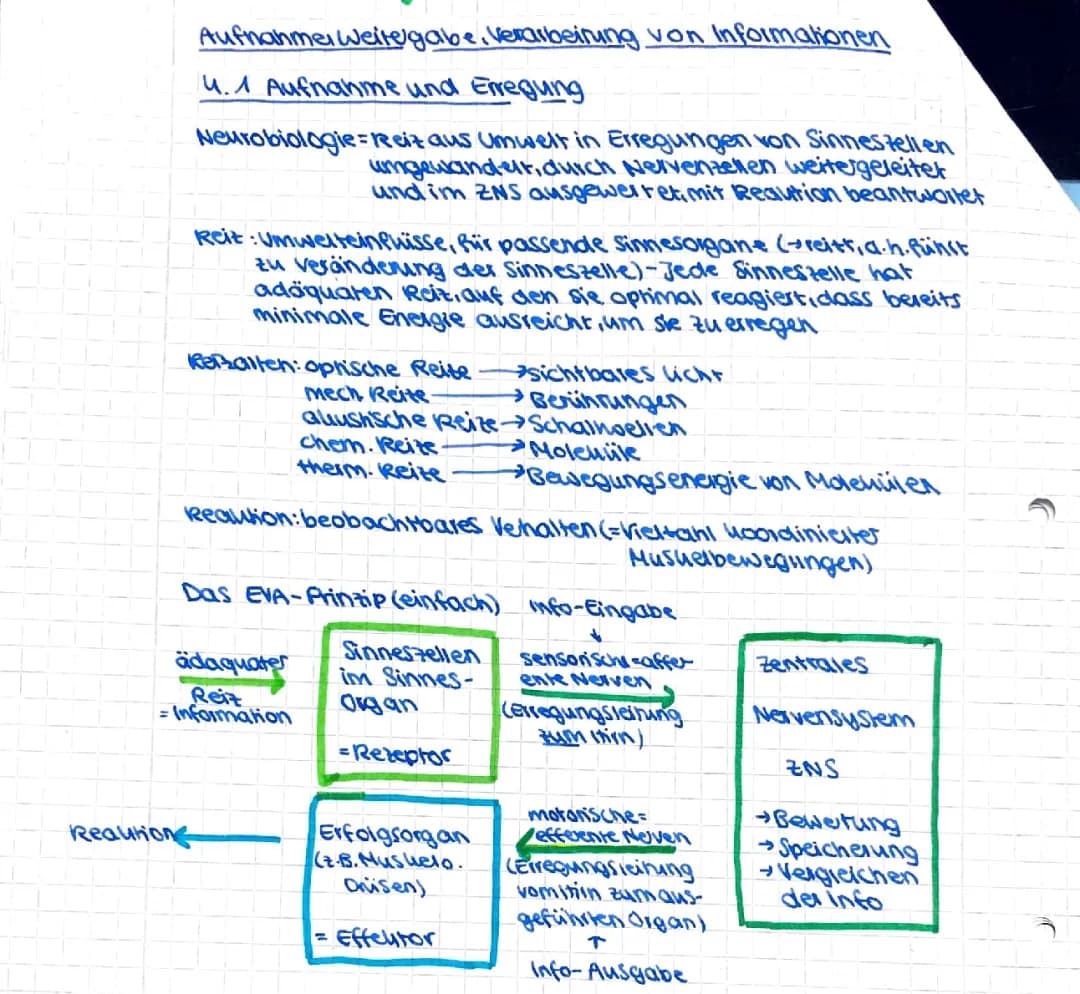 Aufnahme, Weitergabe, Verarbeitung von Informationen
4.1 Aufnahme und Erregung
Neurobiologie = Reiz aus Umwelt in Erregungen von Sinneszellen
umgewandelt, durch Nervenzellen weitergeleitet
und im ZNS ausgewertet, mit Reaktion beantwortet
Reiz: Umwelteinflüsse, für passende Sinnesorgane (→reizt, d.h. führt
zu Veränderung der Sinneszelle) - Jede Sinneszelle hat
adäquaten Reiz, auf den sie optimal reagiert, dass bereits
minimale Energie ausreicht, um sie zu erregen
Reizarten: optische Reize → sichtbares Licht
mech Reize → Berührungen
akustische Reize → Schallwellen
chem. Reize → Moleküle
therm. Reize → Bewegungsenergie von Molekülen
Reaktion: beobachtbares Verhalten (= Vielzahl koordinierter
Muskelbewegungen)
Das EVA-Prinzip (einfach)
Info-Eingabe
↓
ädaquater
Reiz
= Information
Sinneszellen
im Sinnes-
Organ
= Rezeptor
sensorische = affer
ente Nerven
(Erregungsleitung
zum Hirn)
Zentrales
Nervensystem
ZNS
→ Bewertung
→ Speicherung
→ Vergleichen
der Info
Reaktion
Erfolgsorgan
(z.B. Muskel o.
Drüsen)
= Effektor
motorische =
efferente Nerven
(Erregungsleitung
vom Hirn zum aus-
geführten Organ)
↑
Info-Ausgabe